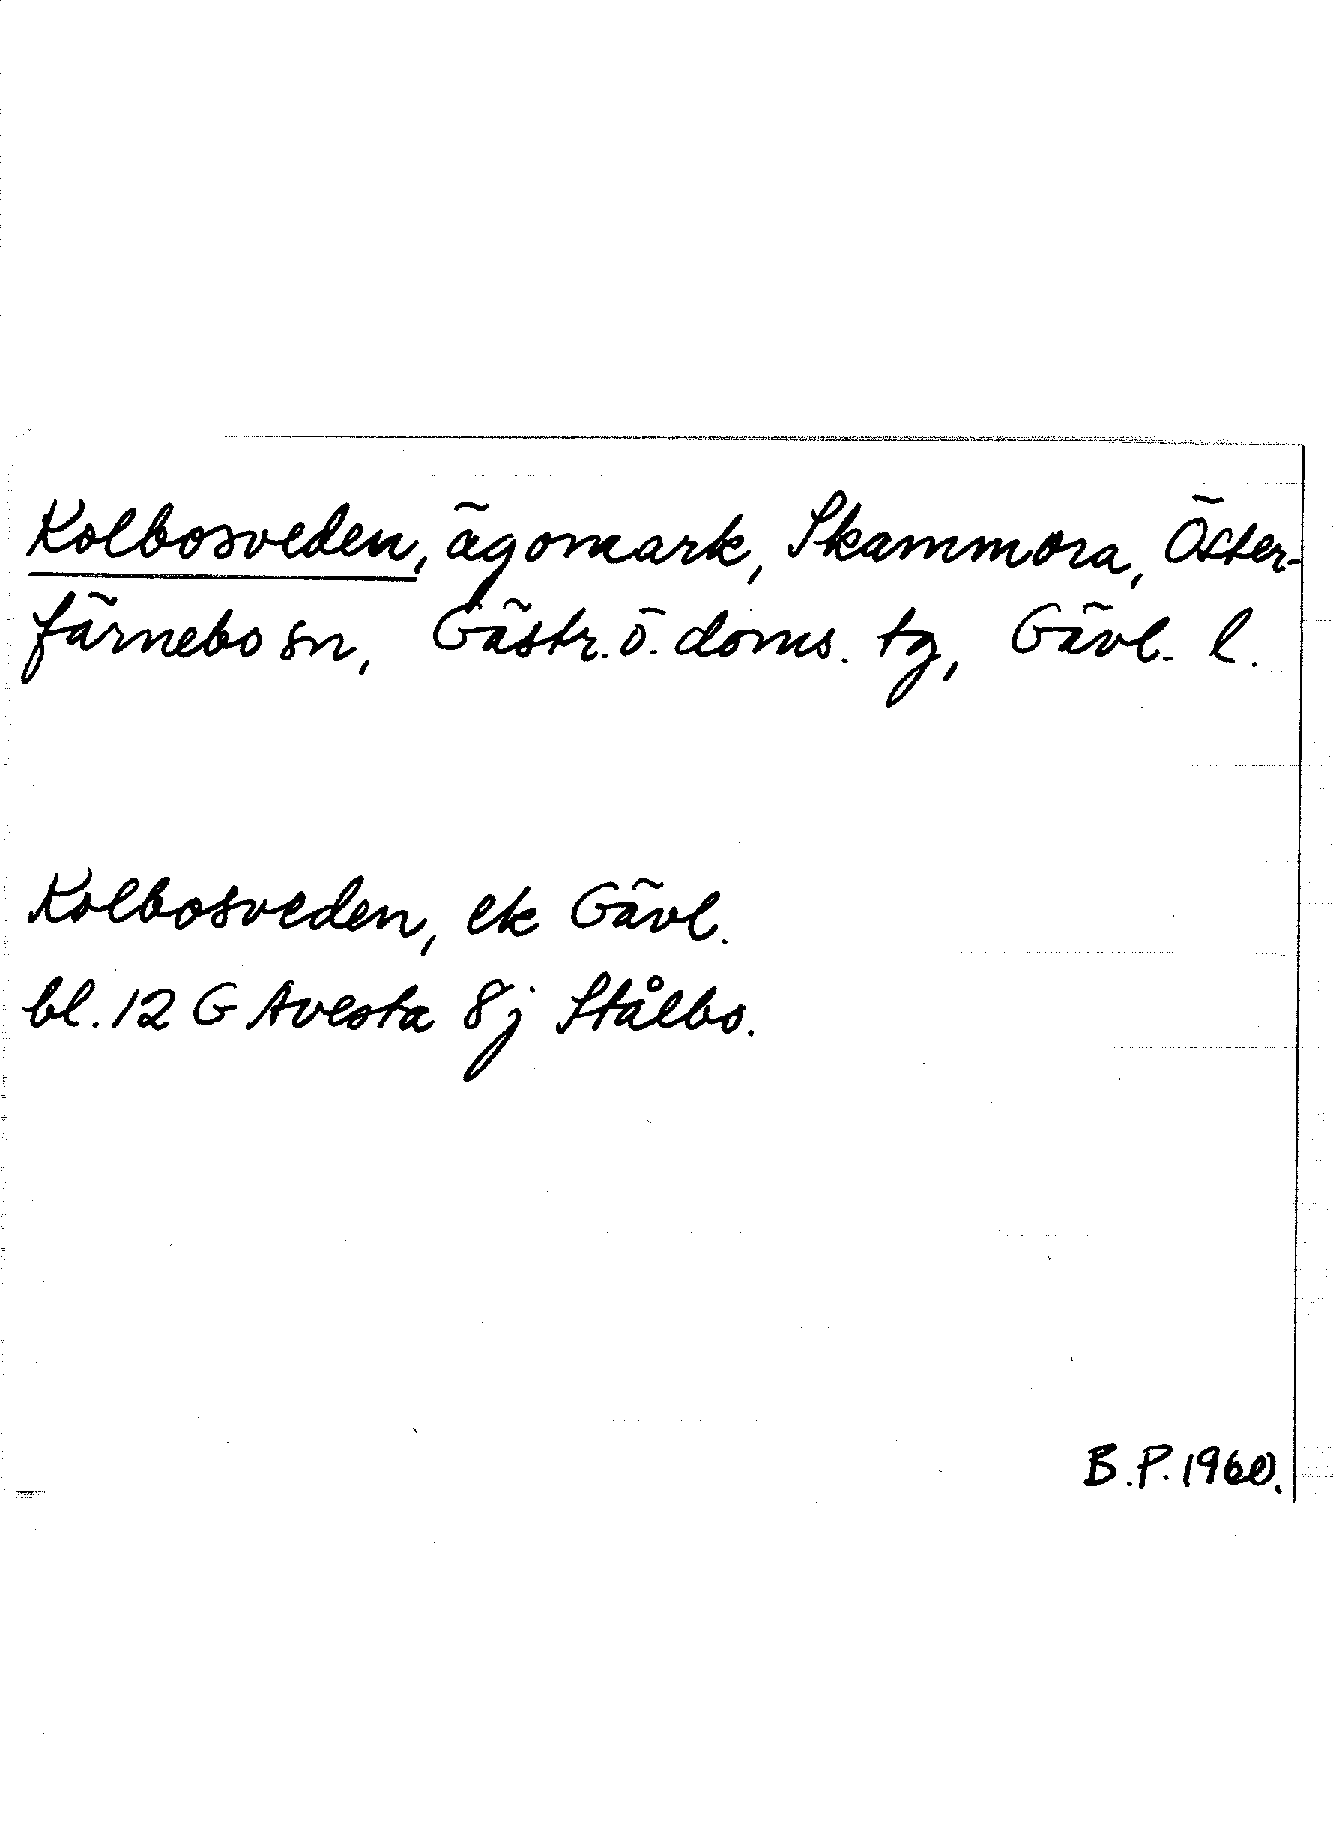 Kolbosveden, ägomark, Skammora, Öster-
färnebo sn, Gästr. ö. doms. tg, Gävl. l.
Kolbosveden, ek Gävl.
bl. 12 G Avesta 8j Stålbo.
B.P. 1960.